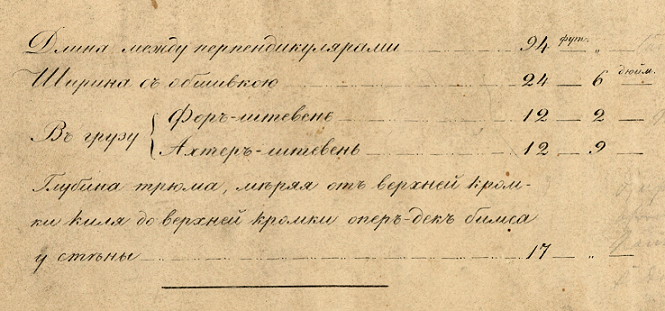 Длина между перпендикулярами 94 фут. "
Ширина съ обшивкою 24 — 6 дюйм.
Въ грузу { Форъ-штевень 12 — 2 —
Ахтеръ-штевень 12 — 9 —
Глубина трюма, мѣряя отъ верхней кром-
ки киля до верхней кромки оперъ-декъ бимса
у стѣны 17 — " —